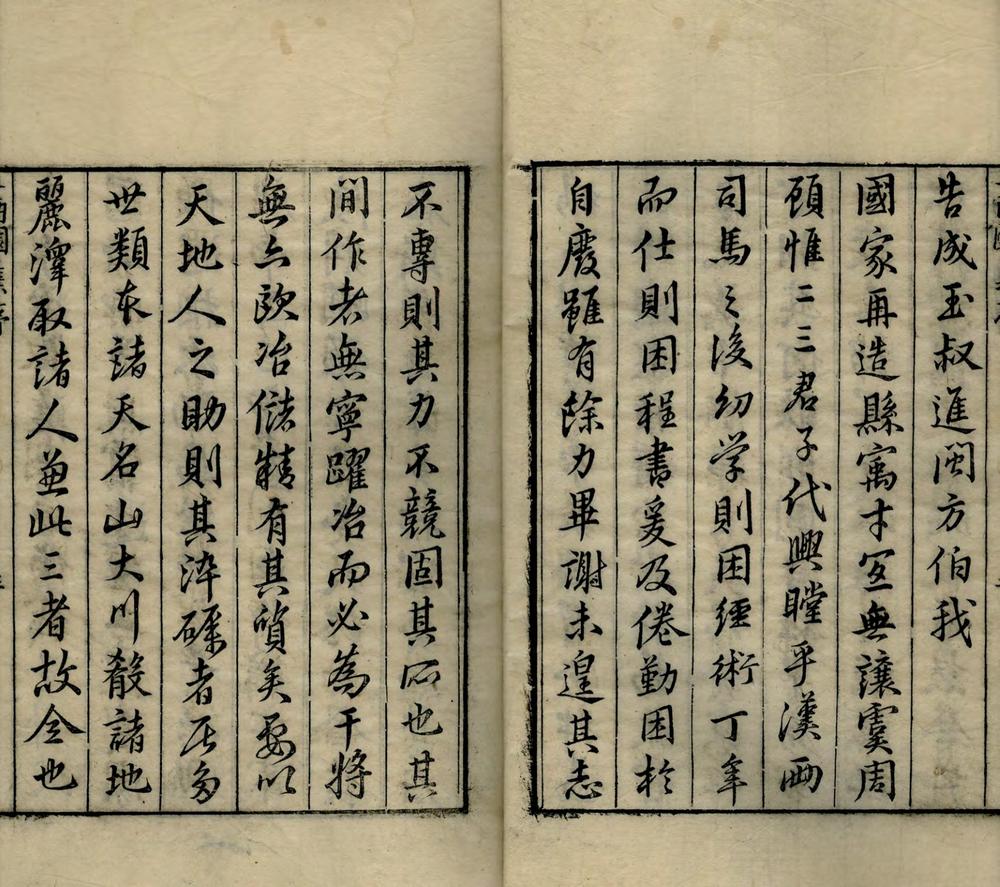 告成玉叔進閩方伯我
國家再造縣寓才宜無讓虞周
顧惟二三君子代興瞠乎漢西
司馬之後幼學則困經術丁年
而仕則困程書爰及倦勤困於
自廢雖有餘力畢謝未遑其志
不專則其力不競固其所也其
間作者無寧躍冶而必為干將
無亦歐冶儲精有其質矣要以
天地人之助則其淬礪者居多
世類本諸天名山大川殽諸地
麗澤取諸人兼此三者故全也